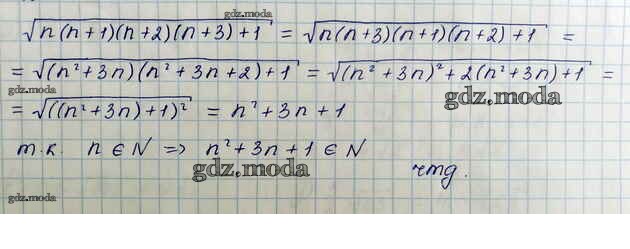 gdz.moda
√n(n+1)(n+2)(n+3)+1 = √n(n+3)(n+1)(n+2)+1 =
= √(n²+3n)(n²+3n+2)+1 = √(n²+3n)²+2(n²+3n)+1 =
gdz.moda
gdz.moda
= √((n²+3n)+1)² = n²+3n+1
т.к. n ∈ N => n²+3n+1 ∈ N
gdz.moda
чтд.
gdz.moda